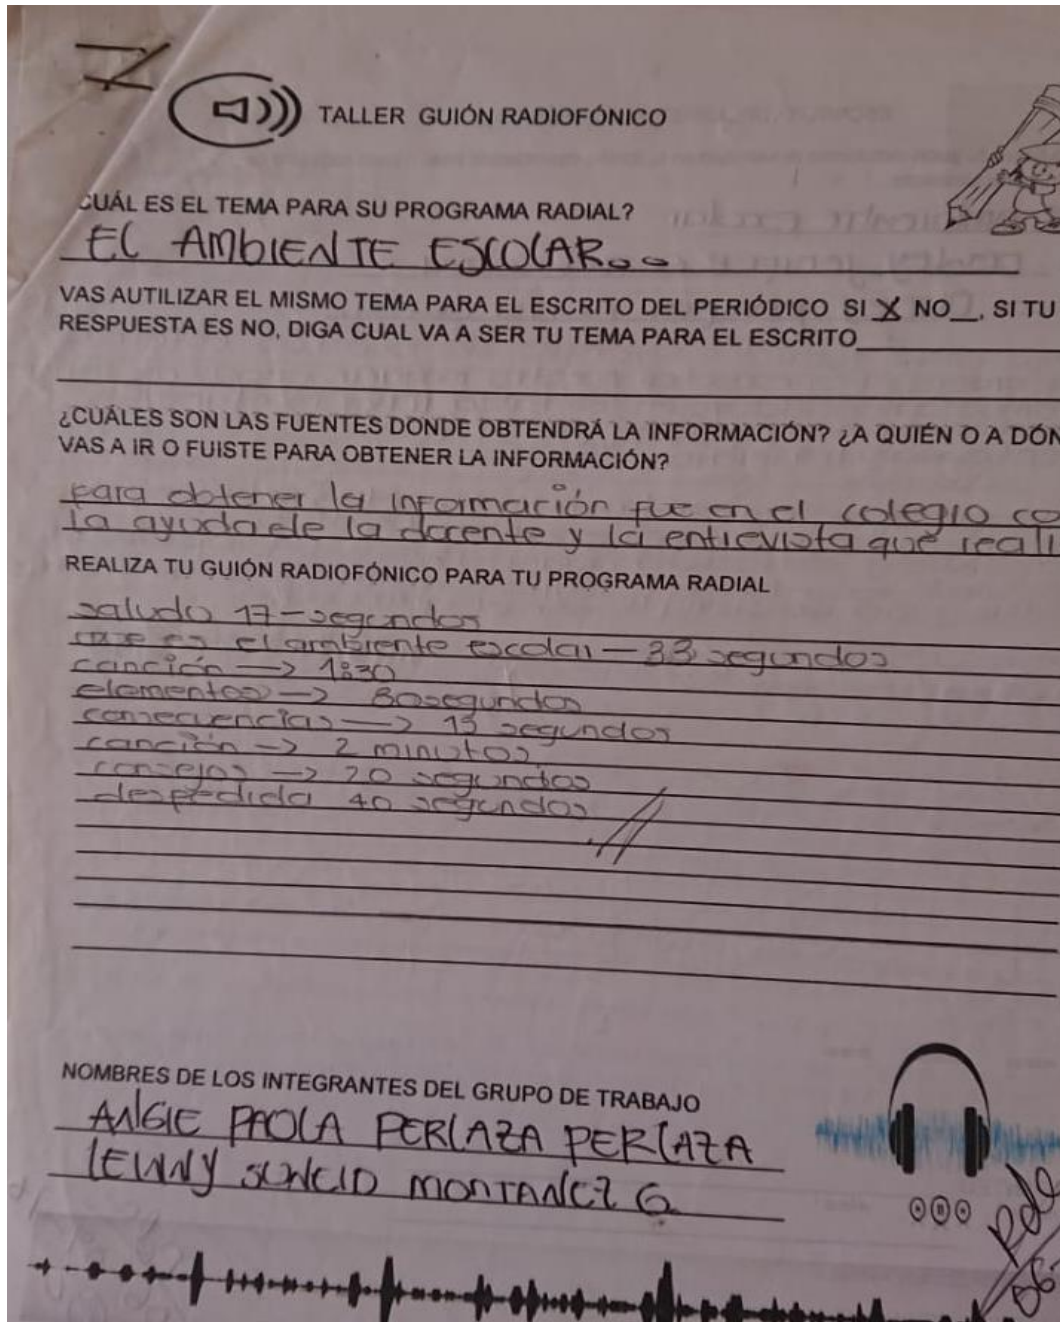 TALLER GUIÓN RADIOFÓNICO
CUÁL ES EL TEMA PARA SU PROGRAMA RADIAL?
EL AMBIENTE ESCOLAR...
VAS AUTILIZAR EL MISMO TEMA PARA EL ESCRITO DEL PERIÓDICO SI X NO__, SI TU
RESPUESTA ES NO, DIGA CUAL VA A SER TU TEMA PARA EL ESCRITO
¿CUÁLES SON LAS FUENTES DONDE OBTENDRÁ LA INFORMACIÓN? ¿A QUIÉN O A DÓN
VAS A IR O FUISTE PARA OBTENER LA INFORMACIÓN?
para obtener la información fue en el colegio co
la ayuda de la docente y la entrevista que reali
REALIZA TU GUIÓN RADIOFÓNICO PARA TU PROGRAMA RADIAL
saludo 17 - segundos
que es el ambiente escolar - 33 segundos
canción -> 1:30
elementos -> segundos
consecuencias -> segundos
canción -> 2 minutos
consejos -> segundos
despedida 40 segundos
NOMBRES DE LOS INTEGRANTES DEL GRUPO DE TRABAJO
ANGIE PAOLA PERLAZA PERLAZA
G